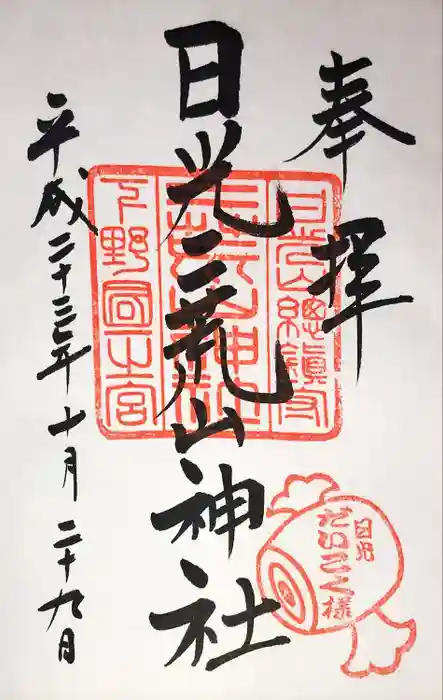 奉拝
日光山總鎮守
日光二荒山神社
二荒山神社
下野國一之宮
平成二十三年十月二十九日
日光
だいこく様